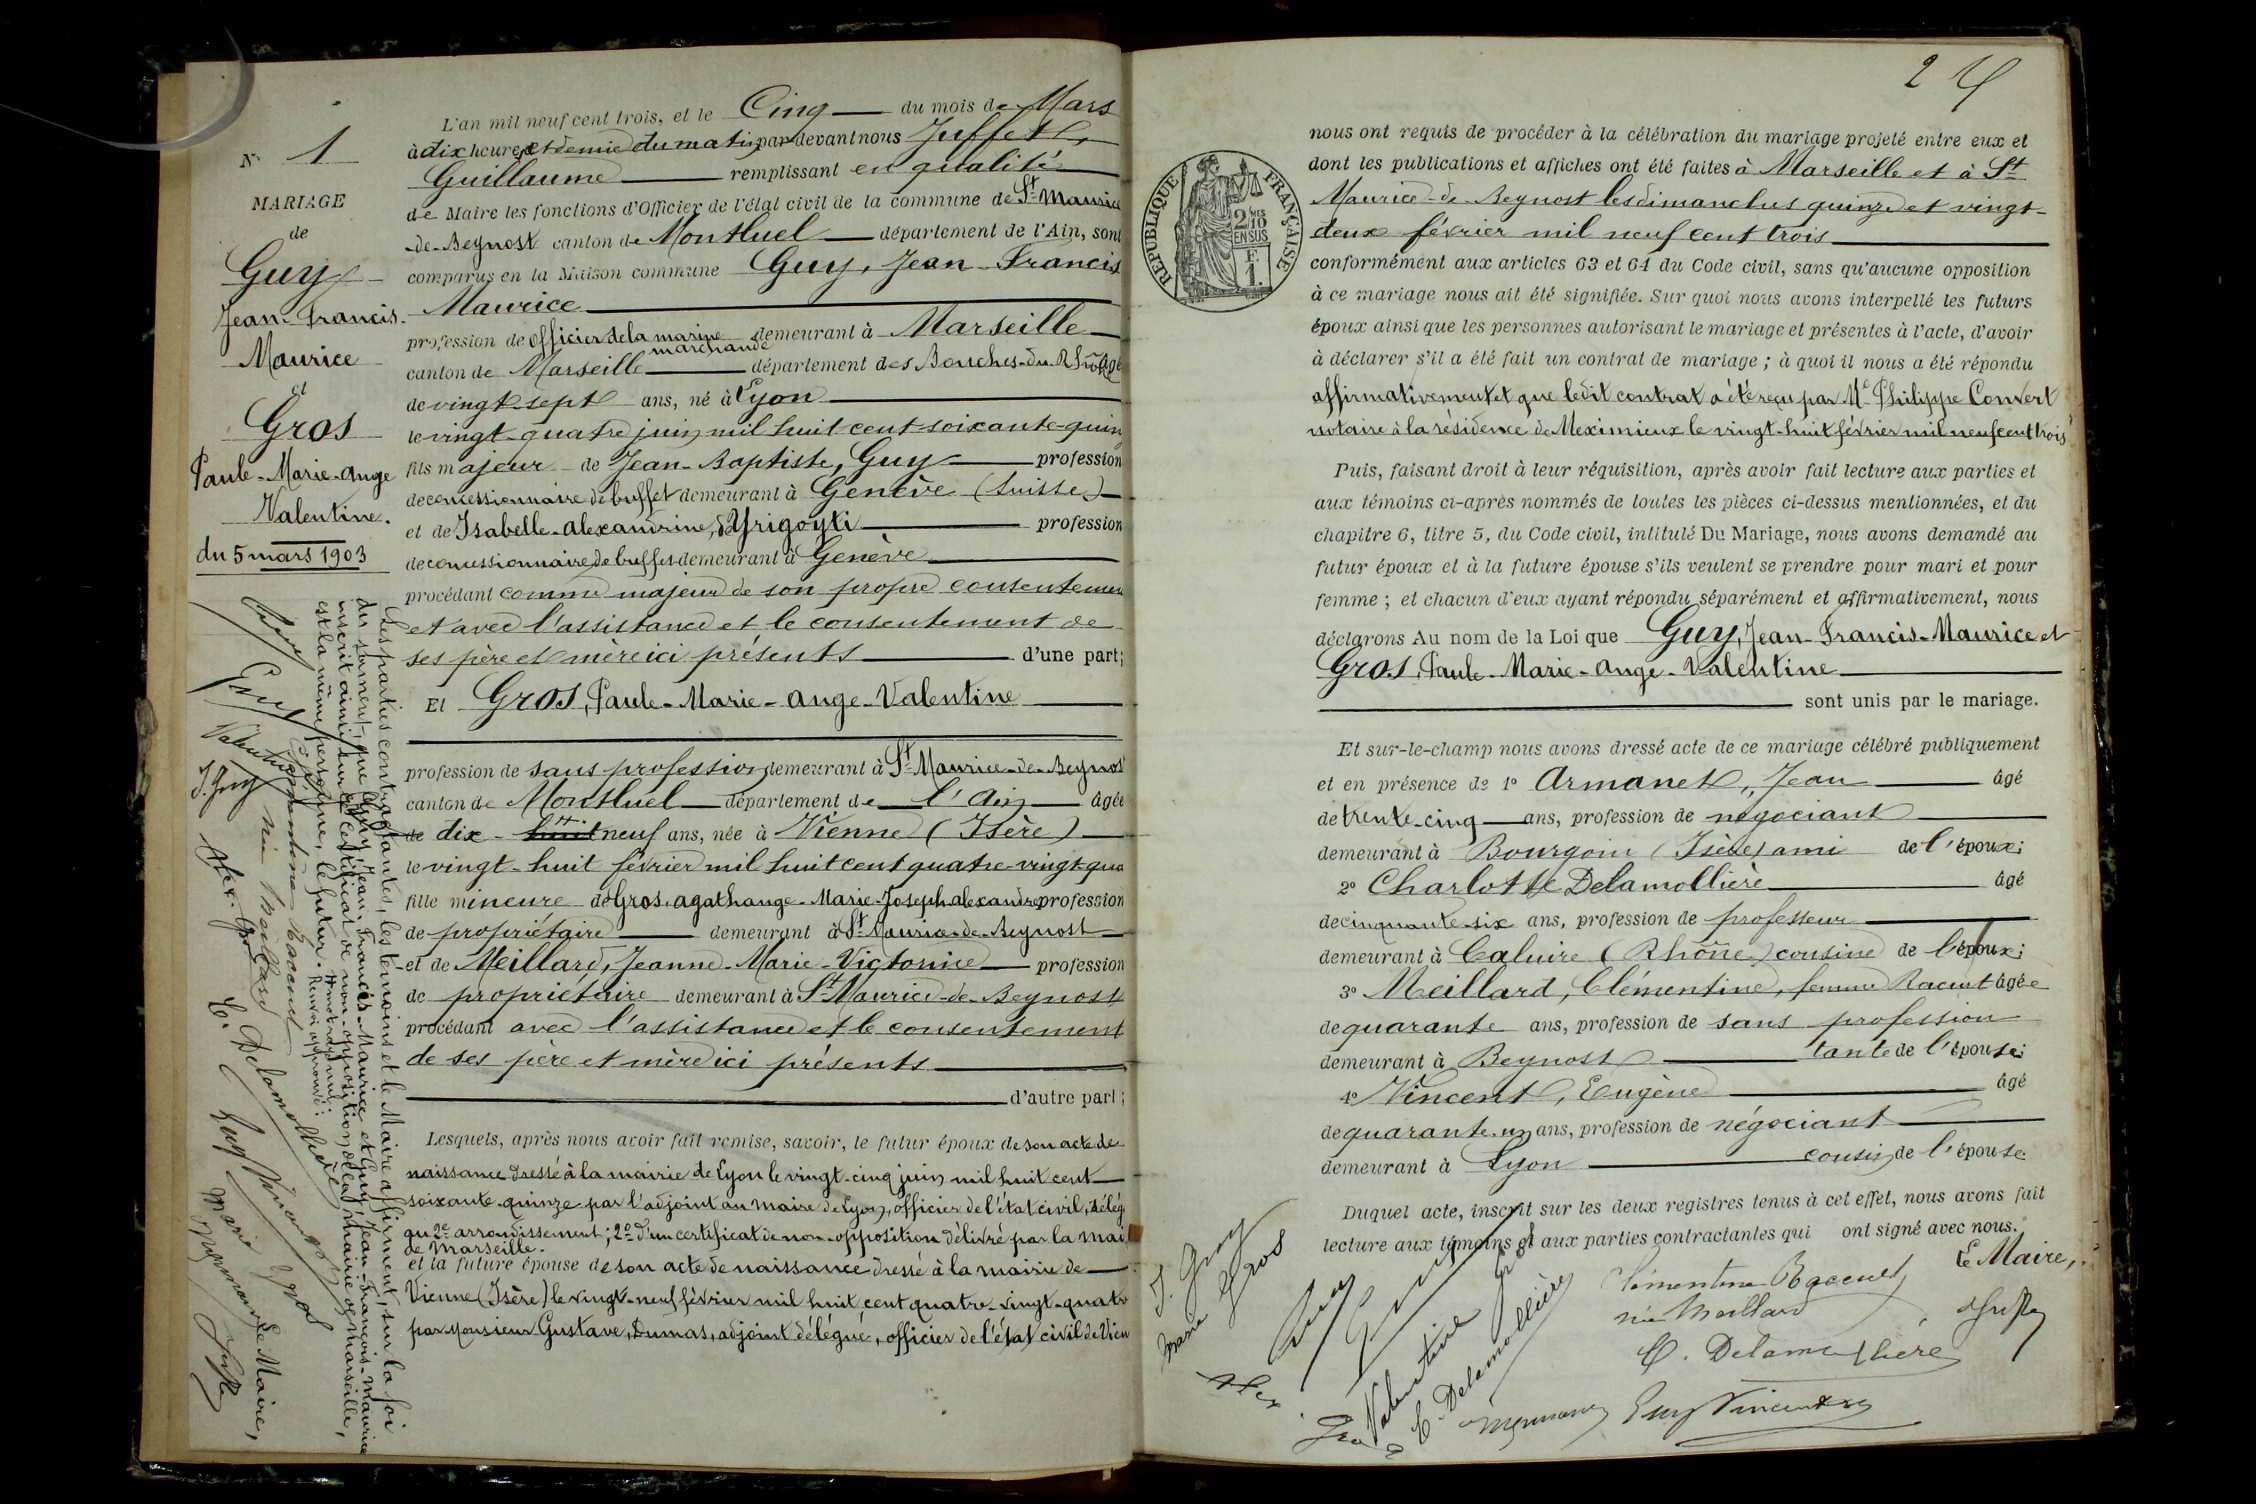 N° 1
MARIAGE
de
Guy
Jean-Francis-
Maurice
et
Gros
Paule-Marie-Ange
Valentine.
du 5 mars 1903
L'an mil neuf cent trois, et le Cinq du mois de Mars
à dix heures et demie du matin par devant nous Juffet,
Guillaume remplissant en qualité
de Maire les fonctions d'Officier de l'état civil de la commune de St-Maurice
-de-Beynost canton de Montluel département de l'Ain, sont
comparus en la Maison commune Guy, Jean-Francis
Maurice
profession de officier de la marine marchande demeurant à Marseille
canton de Marseille département des Bouches-du-Rhône âgé
de vingt-sept ans, né à Lyon
le vingt-quatre juin mil huit cent soixante-quin
fils majeur de Jean-Baptiste, Guy profession
de concessionnaire de buffet demeurant à Genève (Suisse)
et de Isabelle-Alexandrine, d'Yrigoyti profession
de concessionnaire de buffet demeurant à Genève
procédant comme majeur de son propre consentemen
et avec l'assistance et le consentement de
ses père et mère ici présents d'une part;
Et Gros, Paule-Marie-Ange-Valentine
profession de sans profession demeurant à St-Maurice-de-Beynost
canton de Montluel département de l'Ain âgée
de dix-huit neuf ans, née à Vienne (Isère)
le vingt-huit février mil huit cent quatre-vingt-qua
fille mineure de Gros, Agathange-Marie-Joseph-Alexandre profession
de propriétaire demeurant à St-Maurice-de-Beynost
et de Meillard, Jeanne-Marie-Victorine profession
de propriétaire demeurant à St-Maurice-de-Beynost
procédant avec l'assistance et le consentement
de ses père et mère ici présents
d'autre part;
Lesquels, après nous avoir fait remise, savoir, le futur époux de son acte de
naissance dressé à la mairie de Lyon le vingt-cinq juin mil huit cent
soixante-quinze par l'adjoint au maire de Lyon, officier de l'état civil, délég
au 2e arrondissement; 2° d'un certificat de non-opposition délivré par la mai
de Marseille.
et la future épouse de son acte de naissance dressé à la mairie de
Vienne (Isère) le vingt-neuf février mil huit cent quatre-vingt-quatr
par Monsieur Gustave, Dumas, adjoint délégué, officier de l'état civil de Vien
Les parties contractantes, les témoins et le Maire affirment, sur la foi
du serment, que Guy, Jean-Francis-Maurice et Guy, Jean-François-Maurice
inscrit ainsi sur le certificat de non-opposition de la mairie de Marseille,
est la même personne, le futur.
mot rayé nul:
Renvoi approuvé:
Guy
Valentine
J. Guy
Clémentine Racent
née Meillard
Alex Gros
C. Delamollière
Eug Vincent
Marie Gros
Le Maire,
Juffet
2
REPUBLIQUE FRANÇAISE
2/10 EN SUS
F. 1.
nous ont requis de procéder à la célébration du mariage projeté entre eux et
dont les publications et affiches ont été faites à Marseille et à St
Maurice-de-Beynost les dimanches quinze et vingt-
deux février mil neuf cent trois
conformément aux articles 63 et 64 du Code civil, sans qu'aucune opposition
à ce mariage nous ait été signifiée. Sur quoi nous avons interpellé les futurs
époux ainsi que les personnes autorisant le mariage et présentes à l'acte, d'avoir
à déclarer s'il a été fait un contrat de mariage; à quoi il nous a été répondu
affirmativement et que ledit contrat a été reçu par Me Philippe Convert
notaire à la résidence de Meximieux le vingt-huit février mil neuf cent trois
Puis, faisant droit à leur réquisition, après avoir fait lecture aux parties et
aux témoins ci-après nommés de toutes les pièces ci-dessus mentionnées, et du
chapitre 6, titre 5, du Code civil, intitulé Du Mariage, nous avons demandé au
futur époux et à la future épouse s'ils veulent se prendre pour mari et pour
femme; et chacun d'eux ayant répondu séparément et affirmativement, nous
déclarons Au nom de la Loi que Guy, Jean-Francis-Maurice et
Gros, Paule-Marie-Ange-Valentine
sont unis par le mariage.
Et sur-le-champ nous avons dressé acte de ce mariage célébré publiquement
et en présence de 1° Armanet, Jean âgé
de trente-cinq ans, profession de négociant
demeurant à Bourgoin (Isère) ami de l'époux;
2° Charlotte Delamollière âgé
de cinquante-six ans, profession de professeur
demeurant à Caluire (Rhône) cousine de l'époux;
3° Meillard, Clémentine, femme Racent âgée
de quarante ans, profession de sans profession
demeurant à Beynost tante de l'épouse;
4° Vincent, Eugène âgé
de quarante-un ans, profession de négociant
demeurant à Lyon cousin de l'épouse
Duquel acte, inscrit sur les deux registres tenus à cet effet, nous avons fait
lecture aux témoins et aux parties contractantes qui ont signé avec nous.
Le Maire,
Juffet
Clémentine Racent
née Meillard
C. Delamollière
Eug Vincent
J. Guy
Marie Gros
Guy
Valentine Gros
C. Delamollière
Alex. Gros